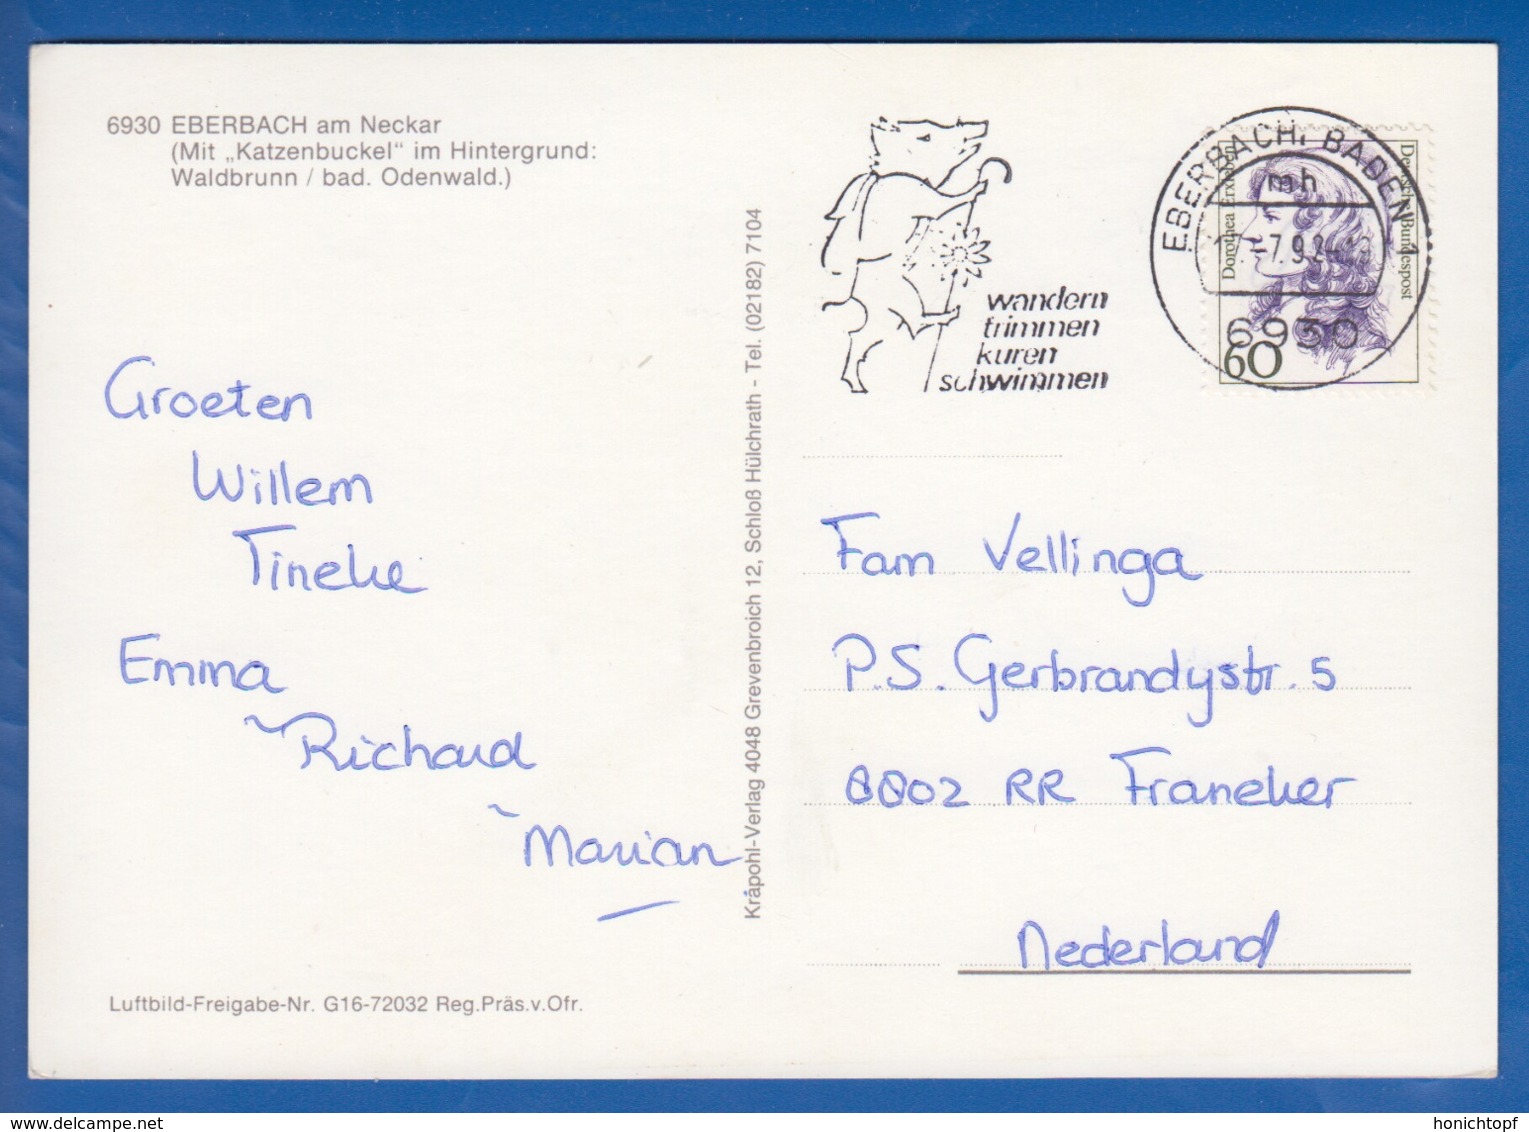 6930 EBERBACH am Neckar
(Mit „Katzenbuckel" im Hintergrund:
Waldbrunn / bad. Odenwald.)
Groeten
Willem
Tineke
Emma
Richard
Marian
Luftbild-Freigabe-Nr. G16-72032 Reg.Präs.v.Ofr.
Kräpohl-Verlag 4048 Grevenbroich 12, Schloß Hülchrath - Tel. (02182) 7104
wandern
trimmen
kuren
schwimmen
EBERBACH, BADEN 1
mh
6930
Dorothea Erxleben
Deutsche Bundespost
60
Fam Vellinga
P.S. Gerbrandystr. 5
8802 RR Franeker
Nederland
delcampe.net
honichtopf